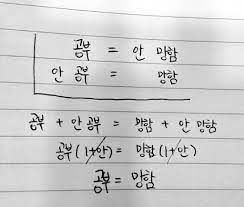 공부 = 안 망함
안 공부 = 망함
공부 + 안 공부 = 망함 + 안 망함
공부(1+안) = 망함(1+안)
공부 = 망함